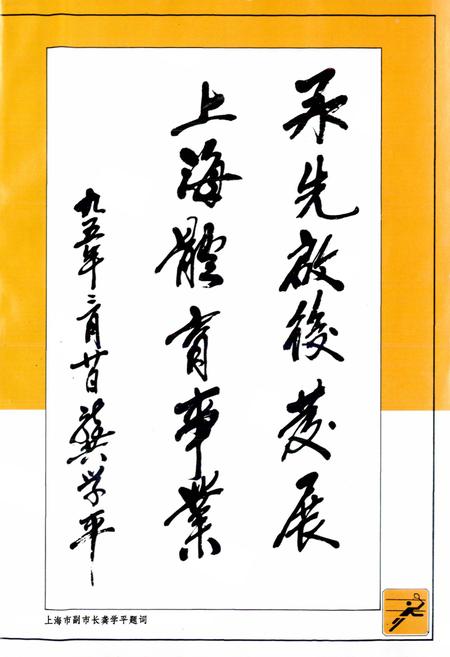 承先啟後發展
上海體育事業
九五年二月廿日 龔学平
上海市副市长龚学平题词